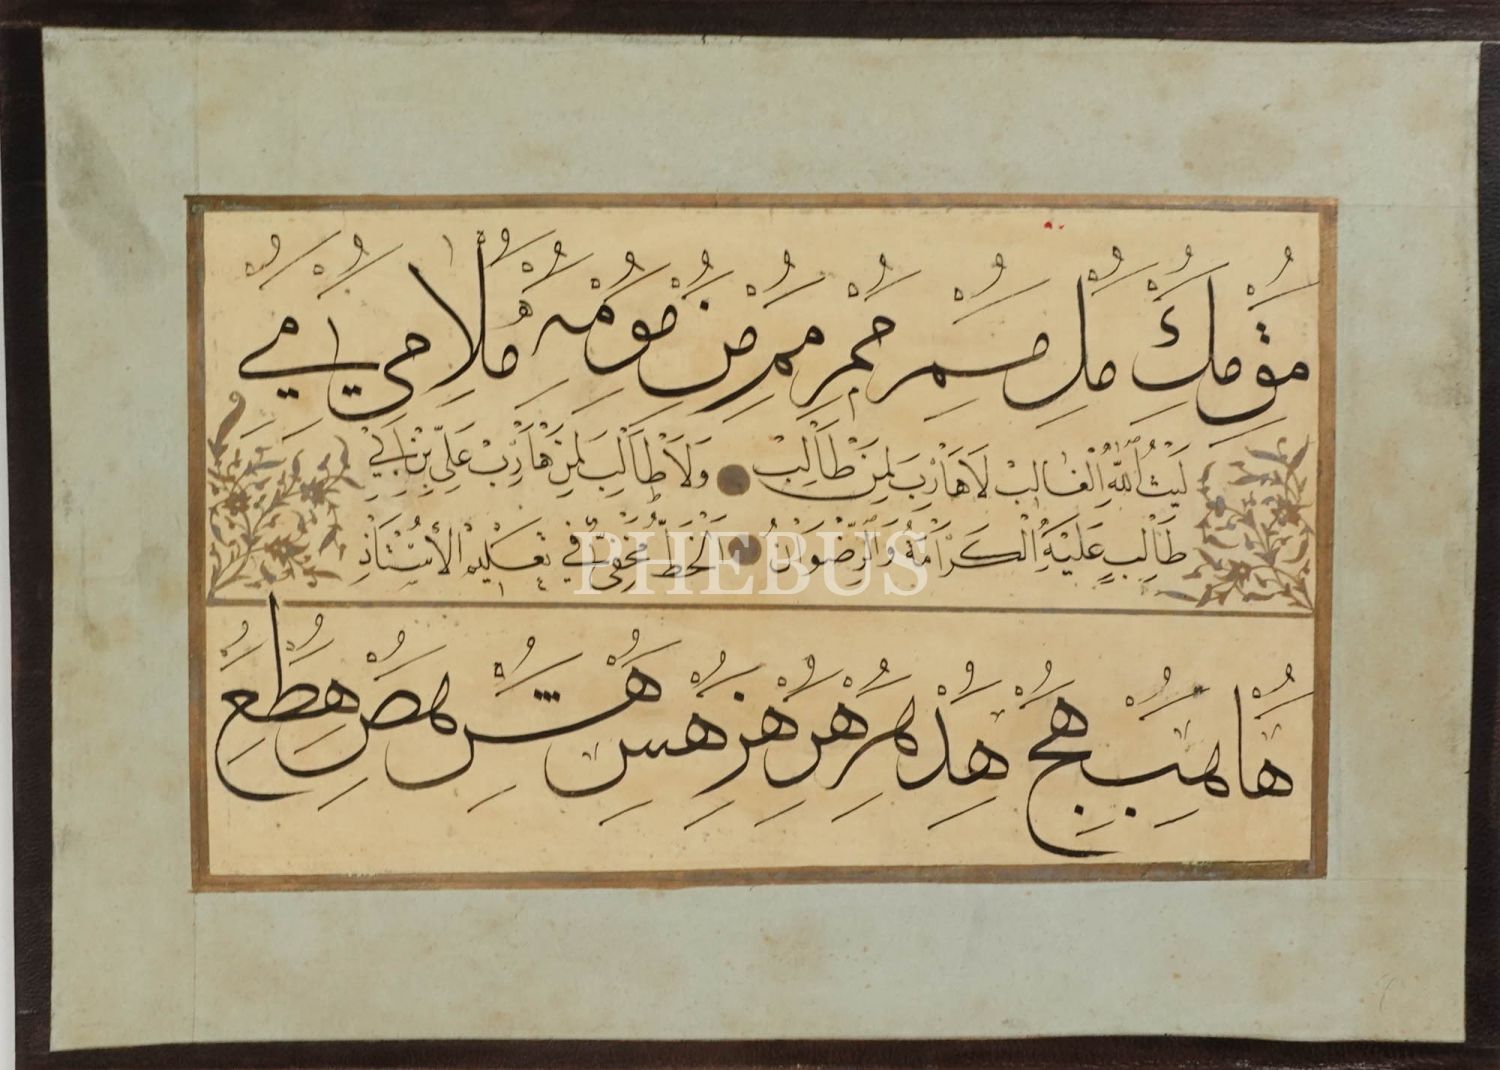 مق مك مل مسم محمر ممر من مو مه ملا مى مے
لَيْثُ اللّٰهِ الْغَالِبْ لَا هَارِبَ لِمَنْ طَالِبْ وَلَا طَالِبَ لِمَنْ هَارِبْ عَلِيِّ بْنِ اَبِيْ
طَالِبٍ عَلَيْهِ الْكَرَامَةُ وَالرِّضْوَانُ اَلْخَطُّ مَخْفِيٌّ فِي تَعْلِيمِ الْأُسْتَاذِ
PHEBUS
ها هب هج هد هر هر هز هس هش هص هط هع